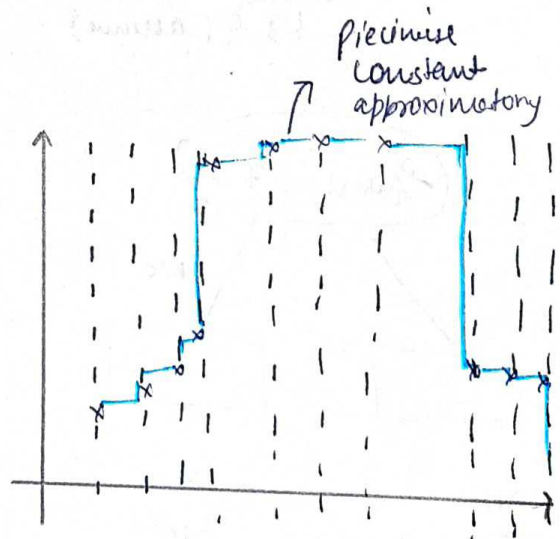 Piecewise
constant
approximatory